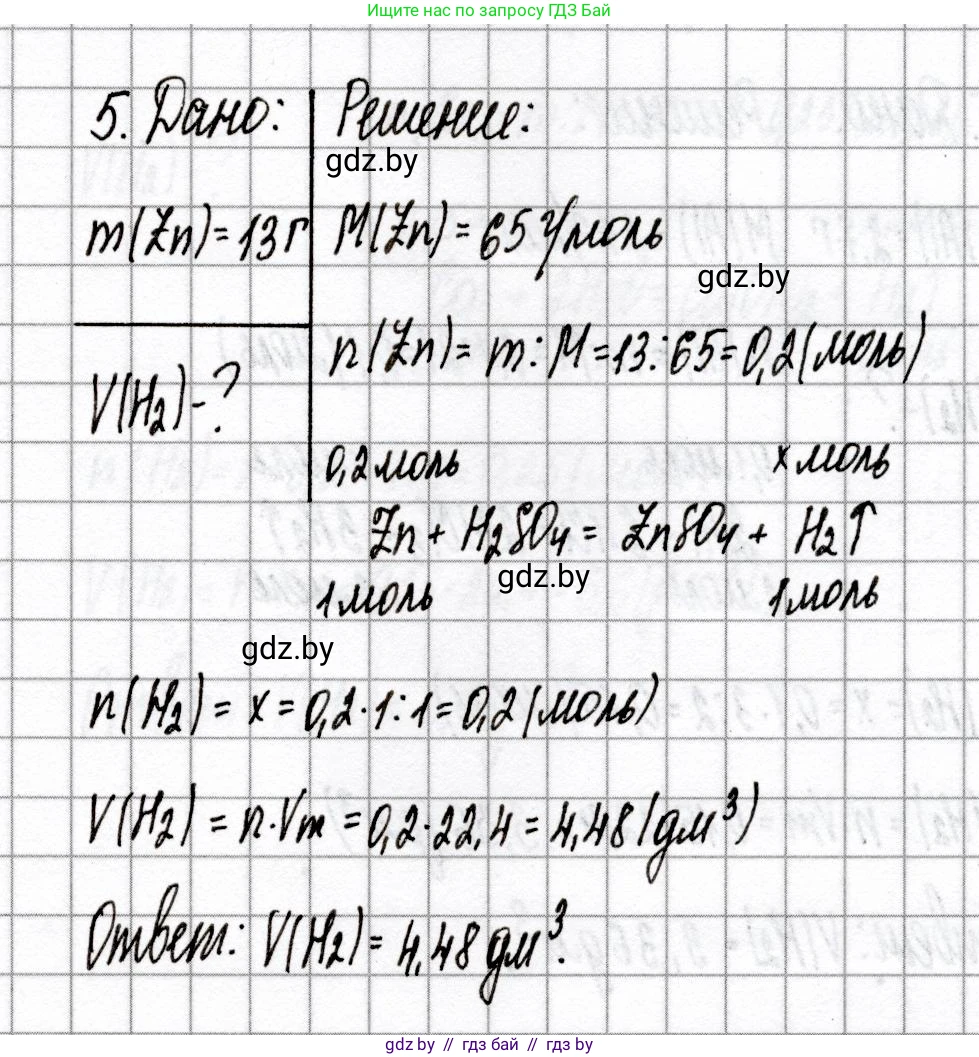 Ищите нас по запросу ГДЗ Бай
5. Дано: Решение:
gdz.by
m(Zn)=13г M(Zn)=65 г/моль
gdz.by
n(Zn)= m:M=13:65=0,2(моль)
V(H₂)-?
0,2моль x моль
Zn + H₂SO₄ = ZnSO₄ + H₂↑
gdz.by
1моль 1моль
gdz.by
n(H₂) = x = 0,2·1:1=0,2(моль)
V(H₂) = n·Vm =0,2·22,4 = 4,48(дм³)
Ответ: V(H₂)= 4,48 дм³.
gdz.by // гдз бай // gdz.by